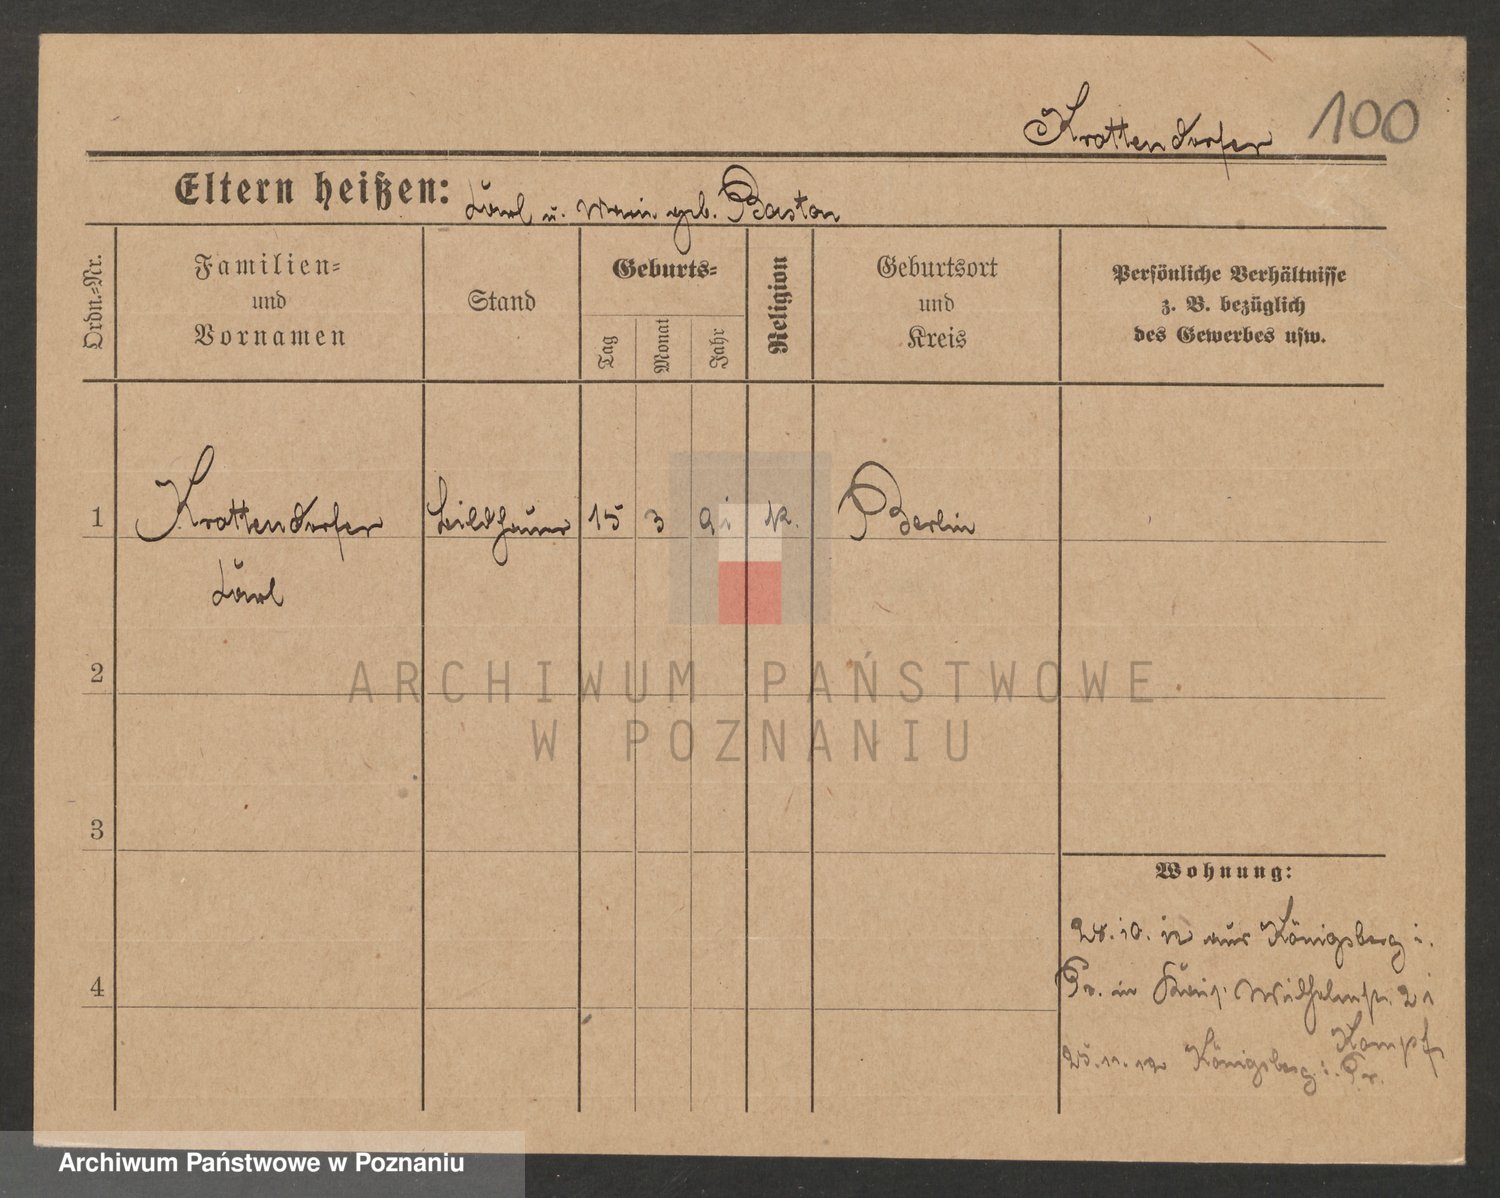 Krottendorfer 100
Eltern heißen: Karl u. Marie geb. Baston
Ordn.-Nr.
Familien-
und
Vornamen
Stand
Geburts-
Tag
Monat
Jahr
Religion
Geburtsort
und
Kreis
Persönliche Verhältnisse
z. B. bezüglich
des Gewerbes usw.
1 Krottendorfer Bildhauer 15 3 91 k. Berlin
Karl
2
3
4
Wohnung:
28.10.12 aus Königsberg i.
Pr. in Wilhelmstr. 21
Kampf
25.11.12 Königsberg i. Pr.
ARCHIWUM PAŃSTWOWE
W POZNANIU
Archiwum Państwowe w Poznaniu